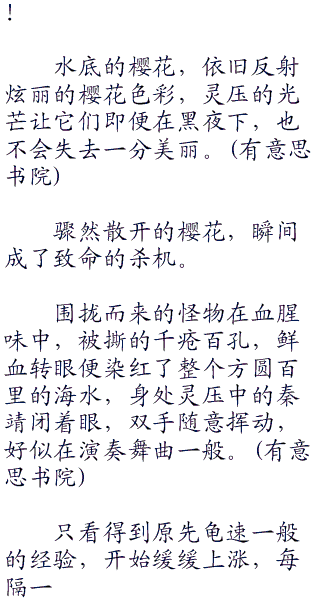 !
水底的樱花，依旧反射
炫丽的樱花色彩，灵压的光
芒让它们即便在黑夜下，也
不会失去一分美丽。(有意思
书院)
骤然散开的樱花，瞬间
成了致命的杀机。
围拢而来的怪物在血腥
味中，被撕的千疮百孔，鲜
血转眼便染红了整个方圆百
里的海水，身处灵压中的秦
靖闭着眼，双手随意挥动，
好似在演奏舞曲一般。(有意
思书院)
只看得到原先龟速一般
的经验，开始缓缓上涨，每
隔一